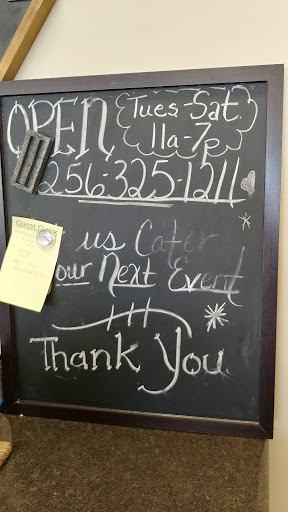 OPEN
Tues-Sat.
11a-7p
256-325-1211
us Cater
your Next Event
Thank You
Guest Check